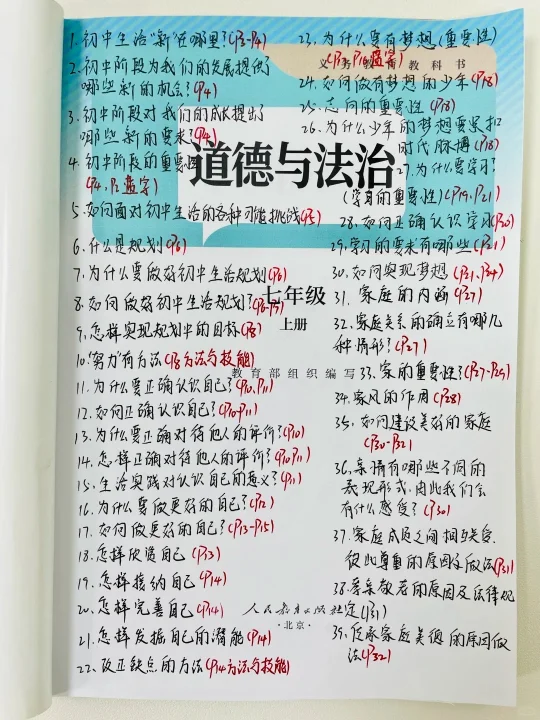 1. 初中生活"新"在哪里?(P3-P4)
2. 初中阶段为我们的发展提供
哪些新的机会?(P4)
3. 初中阶段对我们的成长提出了
哪些新的要求?(P4)
4. 初中阶段的重要性
5. 如何面对初中生活的各种可能挑战(P5)
6. 什么是规划(P6)
7. 为什么要做好初中生活规划(P6)
8. 如何做好初中生活规划?
9. 怎样实现规划中的目标(P8)
10. "努力"有方法(P8方法与技能)
11. 为什么要正确认识自己?(P10、P11)
12. 如何正确认识自己?(P10-P11)
13. 为什么要正确对待他人的评价?(P10)
14. 怎样正确对待他人的评价?(P10、P11)
15. 生活实践对认识自己的意义?(P11)
16. 为什么要做更好的自己?(P12)
17. 如何做更好的自己?(P13-P15)
18. 怎样欣赏自己(P13)
19. 怎样接纳自己(P14)
20. 怎样完善自己(P14)
21. 怎样发掘自己的潜能(P14)
22. 改正缺点的方法(P14方法与技能)
23. 为什么要有梦想(重要性)
24. 如何做有梦想的少年(P18)
25. 志向的重要性(P18)
26. 为什么少年的梦想要紧扣
时代脉搏(P18)
27. 为什么要学习?
(学习的重要性)(P19、P21)
28. 如何正确认识学习(P20)
29. 学习的要求有哪些(P21)
30. 如何实现梦想(P21、P24)
31. 家庭的内涵(P27)
32. 家庭关系的确立有哪几
种情形?(P27)
33. 家的重要性?(P27-P29)
34. 家风的作用(P28)
35. 如何建设美好的家庭
(P30-P32)
36. 亲情有哪些不同的
表现形式,因此我们会
有什么感受?(P30)
37. 家庭成员之间相互关爱、
彼此尊重的原因及做法(P31)
38. 孝亲敬老的原因及法律规
定(P31)
39. 传承家庭美德的原因做
法(P32)
义务教育教科书
道德与法治
七年级
上册
教育部组织编写
人民教育出版社
·北京·